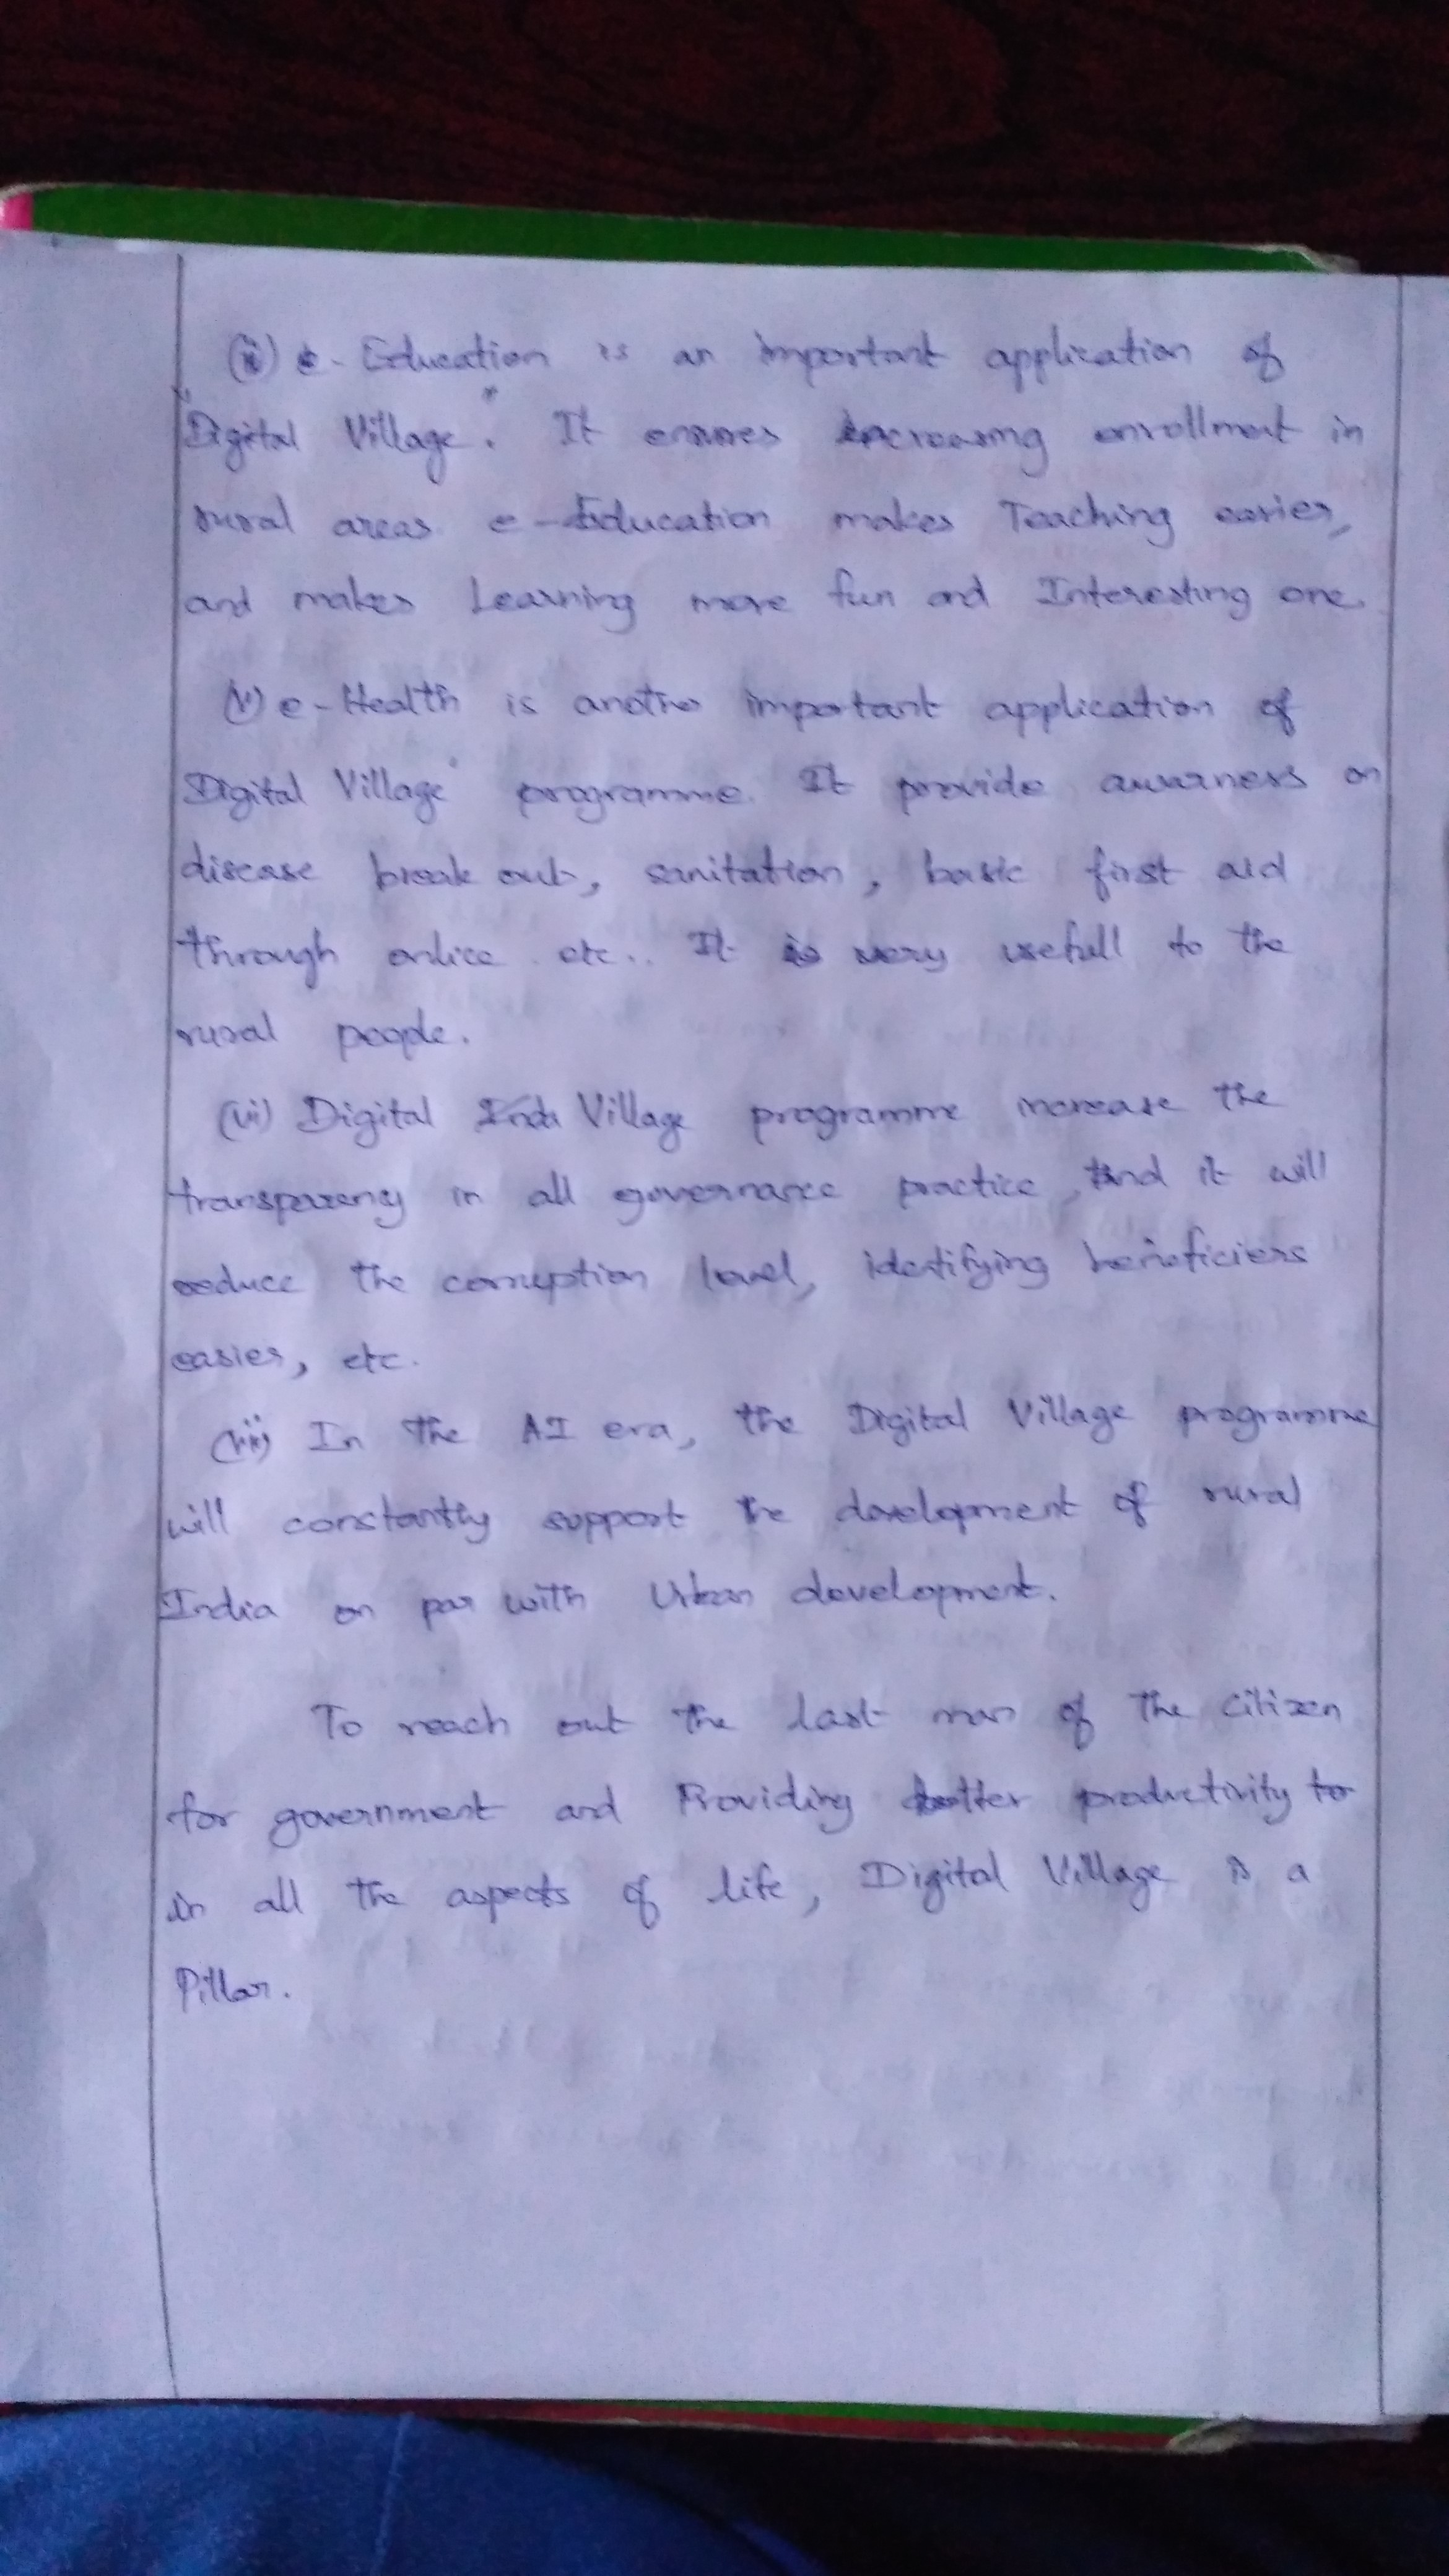 e-Education is an important application of
"Digital Village". It ensures increasing enrollment in
rural areas. e-Education makes Teaching easier,
and makes Learning more fun and Interesting one.
(v) e-Health is another important application of
Digital Village programme. It provide awarness on
disease break out, sanitation, basic first aid
through online etc.. It is very usefull to the
rural people.
(vi) Digital Village programme increase the
transparency in all governance practice, and it will
reduce the corruption level, identifying beneficiers
easier, etc.
(vii) In the AI era, the Digital Village programme
will constantly support the development of rural
India on par with Urban development.
To reach out the last man of the citizen
for government and Providing better productivity
in all the aspects of life, Digital Village is a
Pillar.